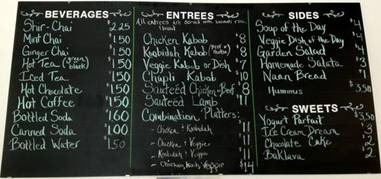 BEVERAGES
Shir Chai $2.25
Mint Chai $1.50
Ginger Chai $1.50
Hot Tea (green black) $1.50
Iced Tea $1.50
Hot Chocolate $1.50
Hot Coffee $1.50
Bottled Soda $1.60
Canned Soda $1.00
Bottled Water 1.50
ENTREES
All entrees are served with
Chicken Kabob $8
Kofta Kabob (beef $8
Veggie Kabob or Dish $7
Chapli Kabob $10
Sauteed Chicken or Beef $8
Sauteed Lamb $11
Combination Platters:
- Chicken +
- Chicken + Veggie
+ Veggie
- Chicken, Veggie
SIDES
Soup of the Day $4
Veggie Dish of the Day $4
Garden Salad $4
Homemade Salata $3
Naan Bread $1
Hummus $3.50
SWEETS
Yogurt Parfait $3.50
Ice Cream Dream $3
Chocolate Cake $2
Baklava $2